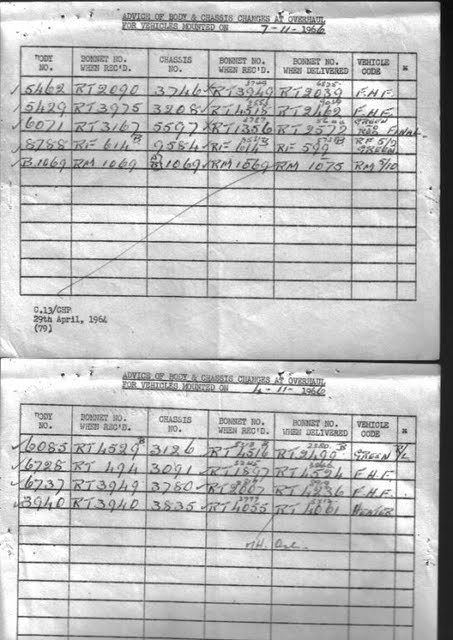 ADVICE OF BODY & CHASSIS CHANGES AT OVERHAUL
FOR VEHICLES MOUNTED ON 7-11-1966
BODY NO. BONNET NO. WHEN REC'D. CHASSIS NO. BONNET NO. WHEN REC'D. BONNET NO. WHEN DELIVERED VEHICLE CODE
5462 RT2090 3746 RT3949 RT2039 F.H.F.
5429 RT3975 3208 RT2462 F.H.F.
6071 RT3167 5597 RT1356 RT2572 GREEN
8788 RF614 B 9584 RF614 RF599 RF 5/2 GREEN
B.1069 RM 1069 1069 RM 1069 RM 1075 RM 5/10
C.13/GHP
29th April, 1964
(79)
ADVICE OF BODY & CHASSIS CHANGES AT OVERHAUL
FOR VEHICLES MOUNTED ON 4-11-1966
BODY NO. BONNET NO. WHEN REC'D. CHASSIS NO. BONNET NO. WHEN REC'D. BONNET NO. WHEN DELIVERED VEHICLE CODE
6085 RT4529 B 3126 RT4516 RT2499 GREEN
6728 RT 494 3091 RT1897 RT4524 F.H.F.
6737 RT3949 3780 F.H.F.
3940 RT3940 3835 RT4055 RT4001 HEATER